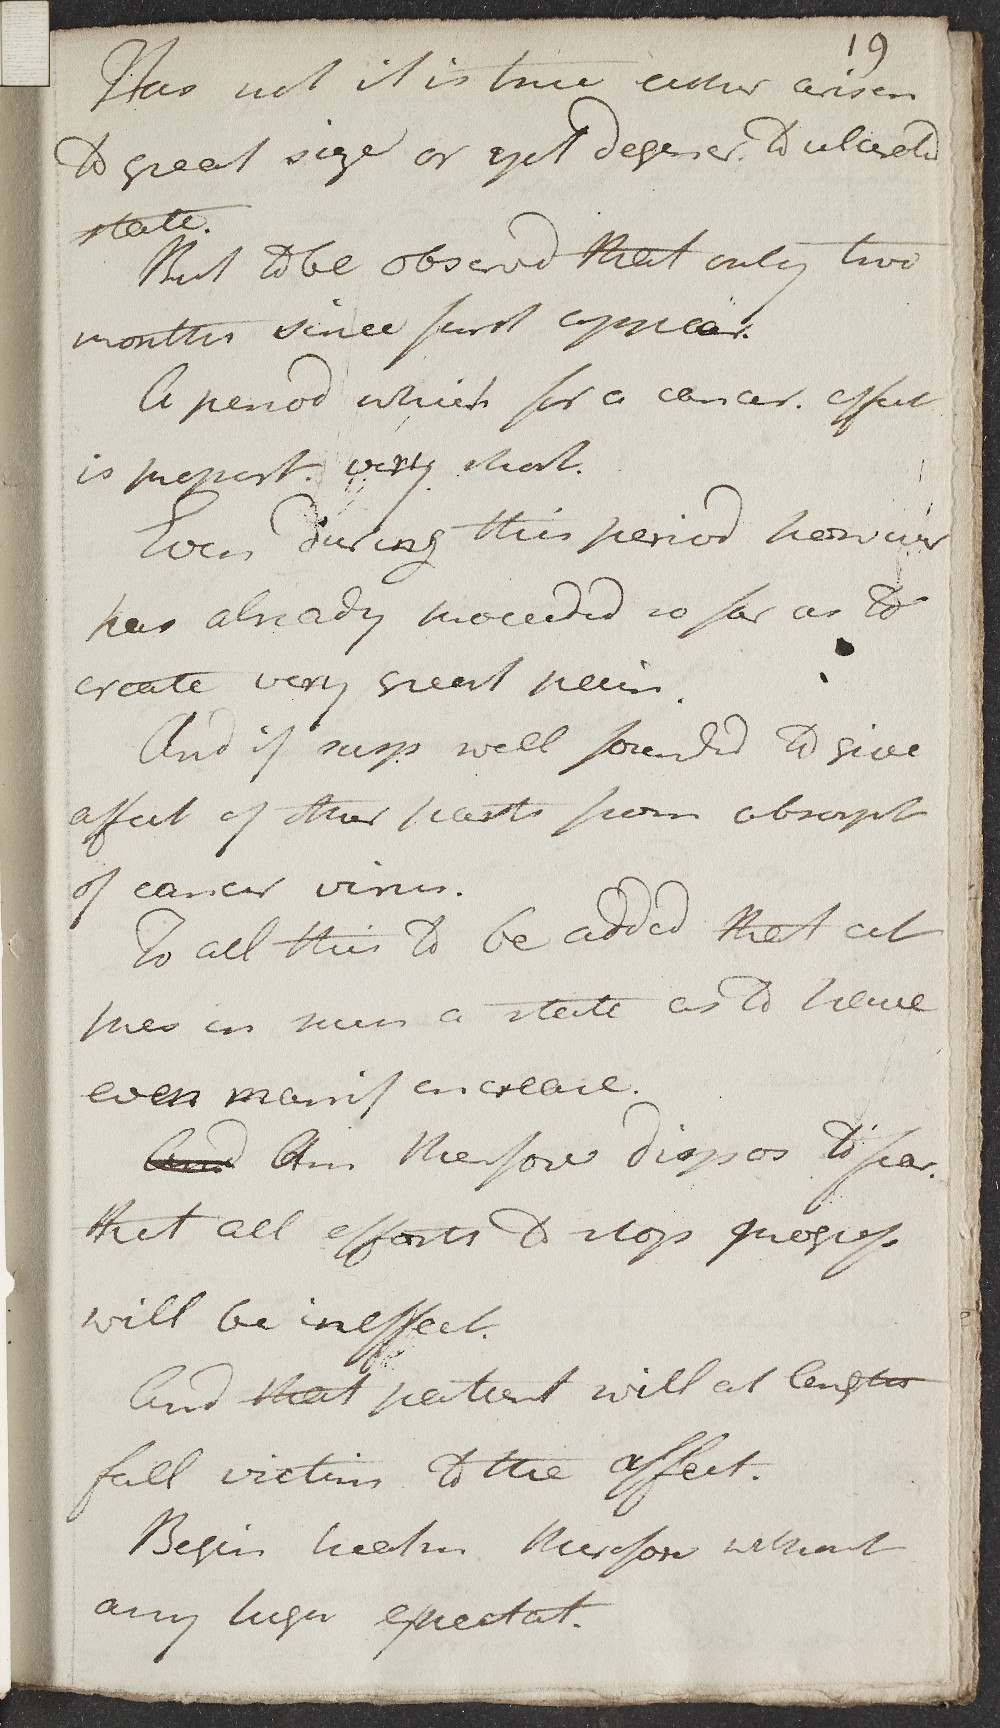 19
Has not it is true either arisen
to great size or yet degener. to ulcerd
state.
But to be observd that only two
months since first appear.
A period which for a cancer. affect
is proport. very short.
Even during this period however
has already proceeded so far as to
create very great pain.
And if susp. well founded to give
affect of other parts from absorpt
of cancer virus.
To all this to be added that at
pres in such a state as to have
even manif increase.
And Am therefore dispos to fear.
that all efforts to stop progress
will be ineffect.
And that patient will at length
fall victim to the affect.
Begin therefore without
any high expectat.